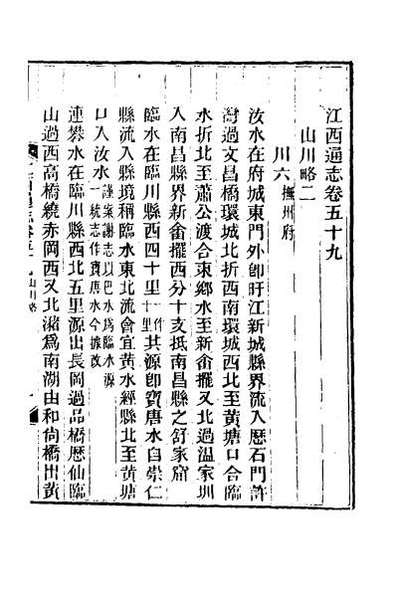 江西通志卷五十九
山川略二
川六 撫州府
汝水在府城東門外卽盱江新城縣界流入歷石門許
灣過文昌橋環城北折西南環城西北至黃塘口合臨
水折北至蕭公渡合東鄉水至新畬擺又北過溫家圳
入南昌縣界新畬擺西分十支抵南昌縣之舒家窟
臨水在臨川縣西四十里一作十里其源卽寶唐水自崇仁
縣流入縣境稱臨水東北流會宜黃水經縣北至黃塘
口入汝水謹案謝志以巴水爲臨水源一統志作寶唐水今據改
連樊水在臨川縣西北五里源出長岡過品橋歷仙臨
山過西高橋繞赤岡西又北瀦爲南湖由和尙橋出黃
山川略